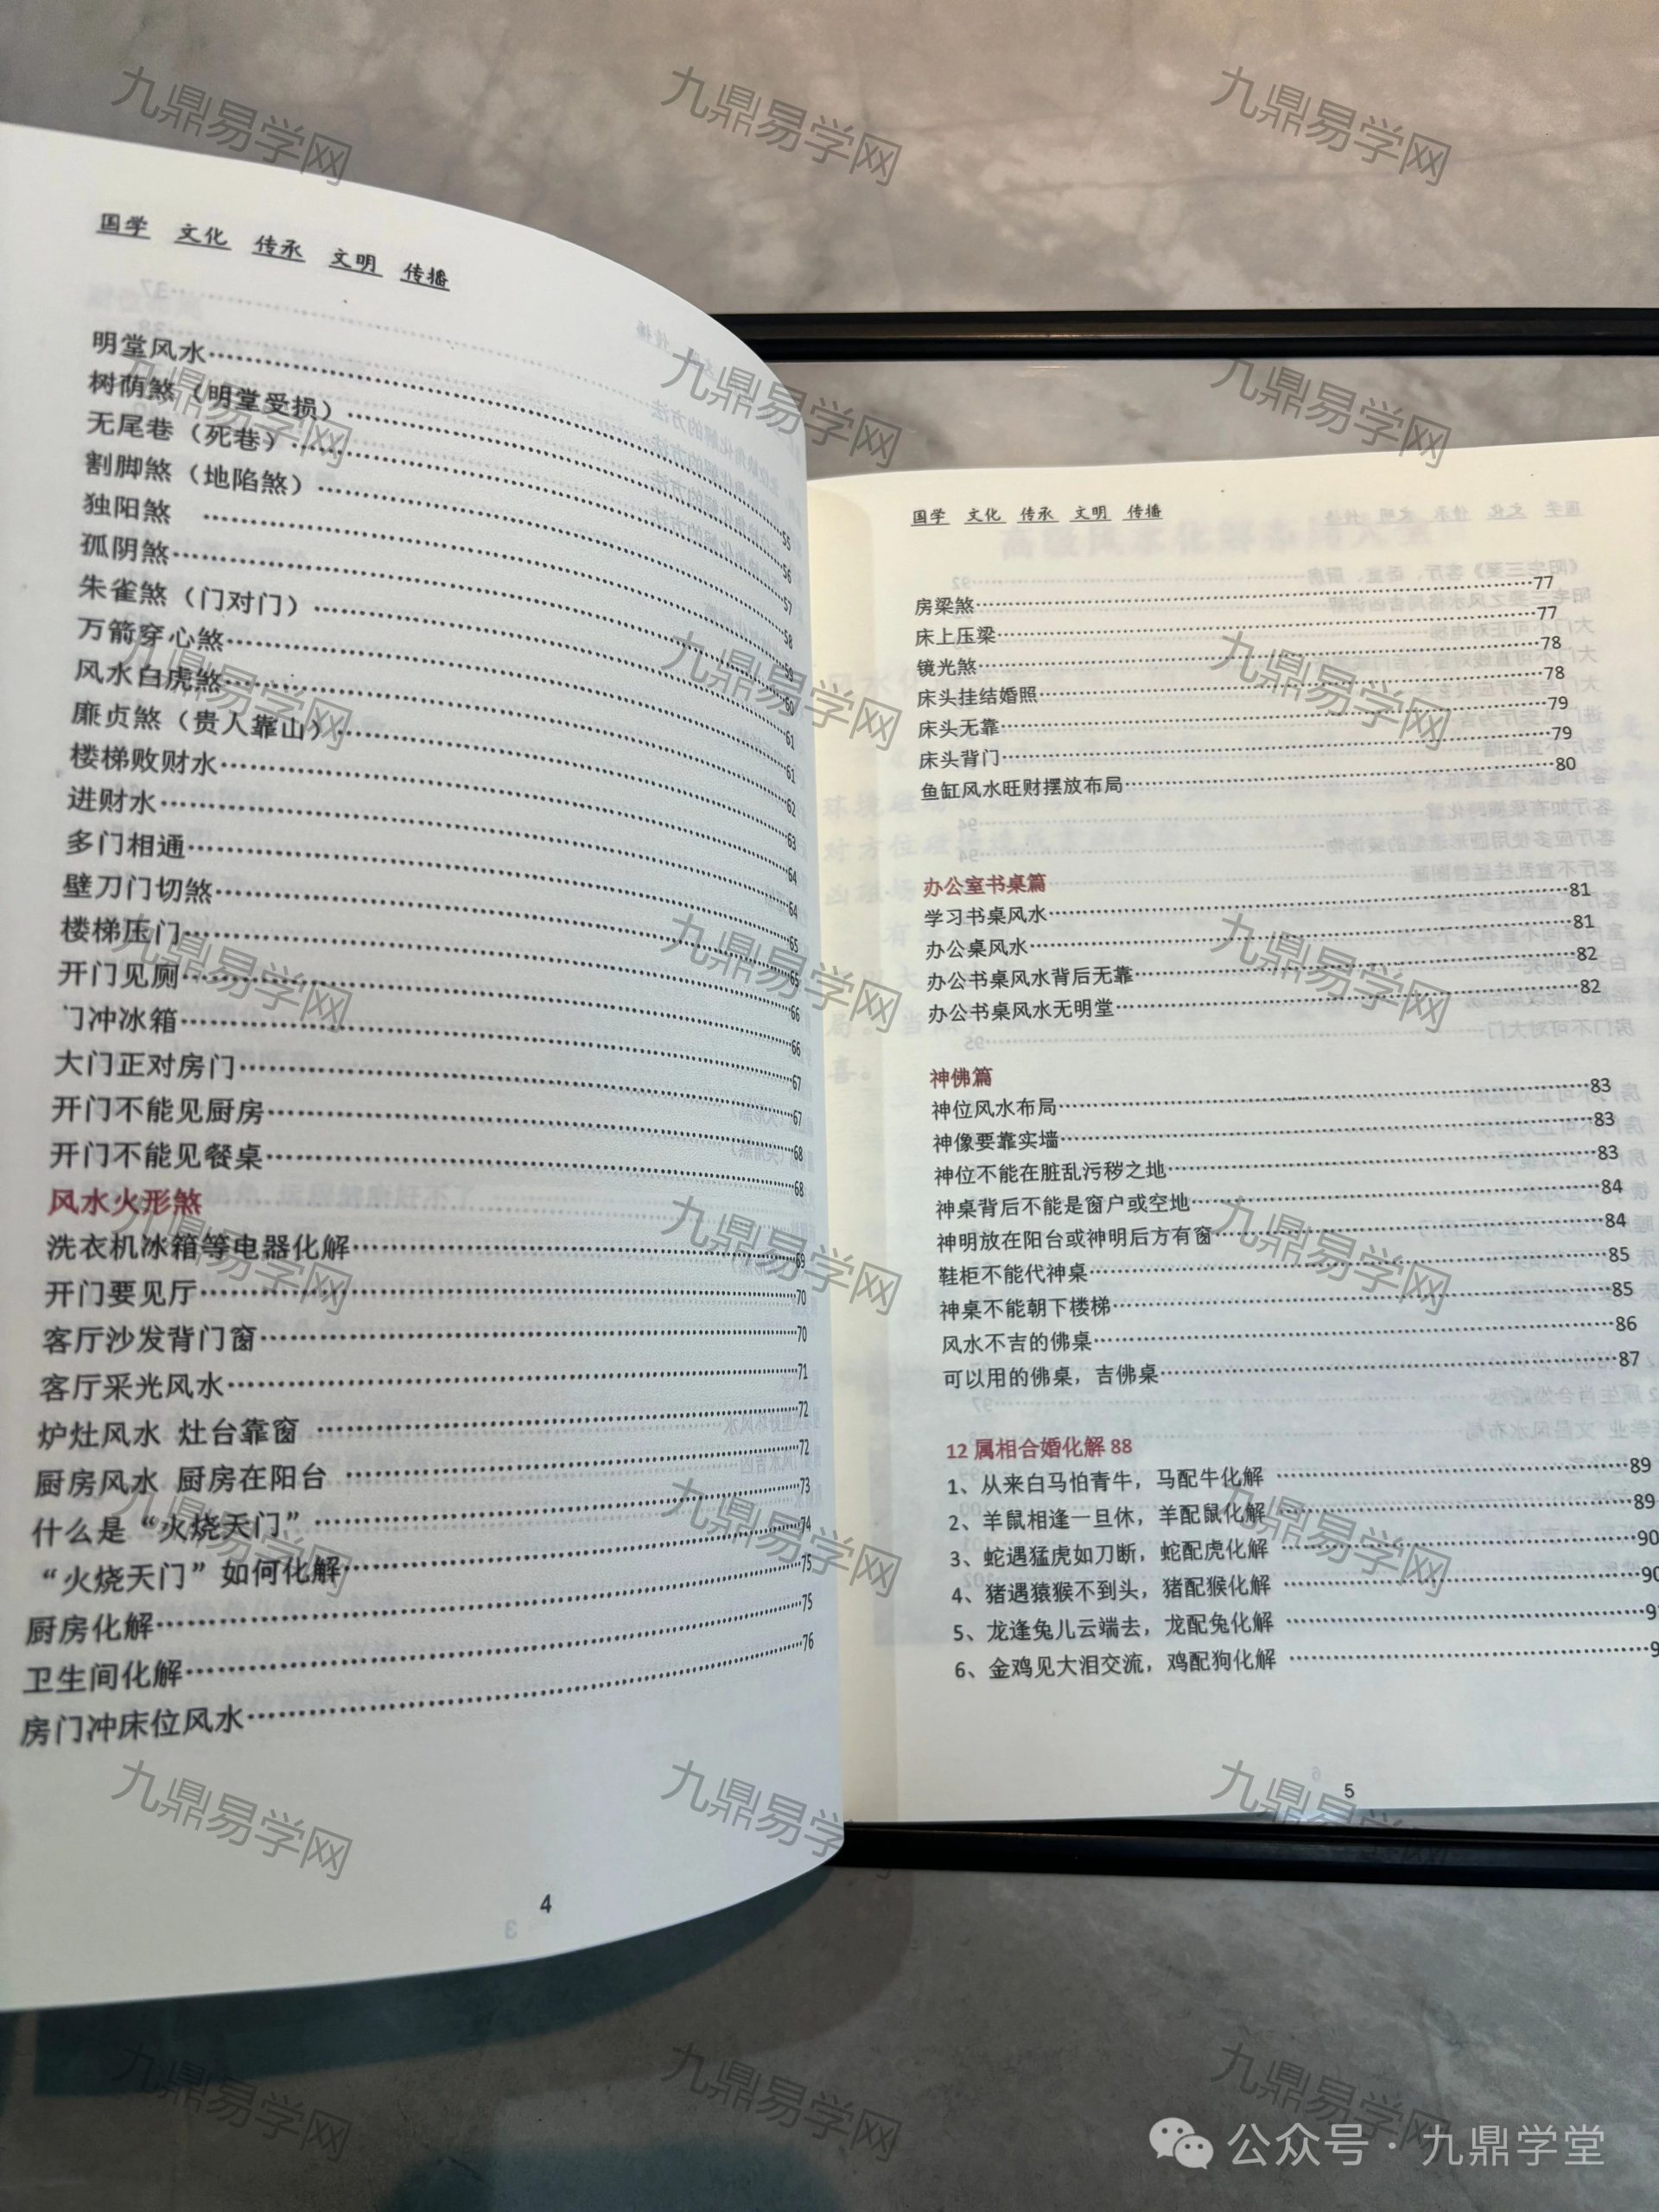 国学 文化 传承 文明 传播
明堂风水……55
树荫煞（明堂受损）……56
无尾巷（死巷）……57
割脚煞（地陷煞）……58
独阳煞 ……59
孤阴煞……60
朱雀煞（门对门）……61
万箭穿心煞……61
风水白虎煞……62
廉贞煞（贵人靠山）……63
楼梯败财水……64
进财水……64
多门相通……65
壁刀门切煞……65
楼梯压门……66
开门见厕……66
门冲冰箱……67
大门正对房门……67
开门不能见厨房……68
开门不能见餐桌……68
风水火形煞
洗衣机冰箱等电器化解……69
开门要见厅……70
客厅沙发背门窗……70
客厅采光风水……71
炉灶风水 灶台靠窗 ……72
厨房风水 厨房在阳台 ……72
什么是“火烧天门” ……73
“火烧天门”如何化解……74
厨房化解……75
卫生间化解……75
房门冲床位风水……76
4
国学 文化 传承 文明 传播
房梁煞……77
床上压梁……77
镜光煞……78
床头挂结婚照……78
床头无靠……79
床头背门……79
鱼缸风水旺财摆放布局……80
办公室书桌篇
学习书桌风水……81
办公桌风水……81
办公书桌风水背后无靠……82
办公书桌风水无明堂……82
神佛篇
神位风水布局……83
神像要靠实墙……83
神位不能在脏乱污秽之地……83
神桌背后不能是窗户或空地……84
神明放在阳台或神明后方有窗……84
鞋柜不能代神桌……85
神桌不能朝下楼梯……85
风水不吉的佛桌……86
可以用的佛桌，吉佛桌……87
12属相合婚化解 88
1、从来白马怕青牛，马配牛化解 ……89
2、羊鼠相逢一旦休，羊配鼠化解 ……89
3、蛇遇猛虎如刀断，蛇配虎化解 ……90
4、猪遇猿猴不到头，猪配猴化解 ……90
5、龙逢兔儿云端去，龙配兔化解 ……9
6、金鸡见犬泪交流，鸡配狗化解 ……9
5
九鼎易学网
公众号·九鼎学堂